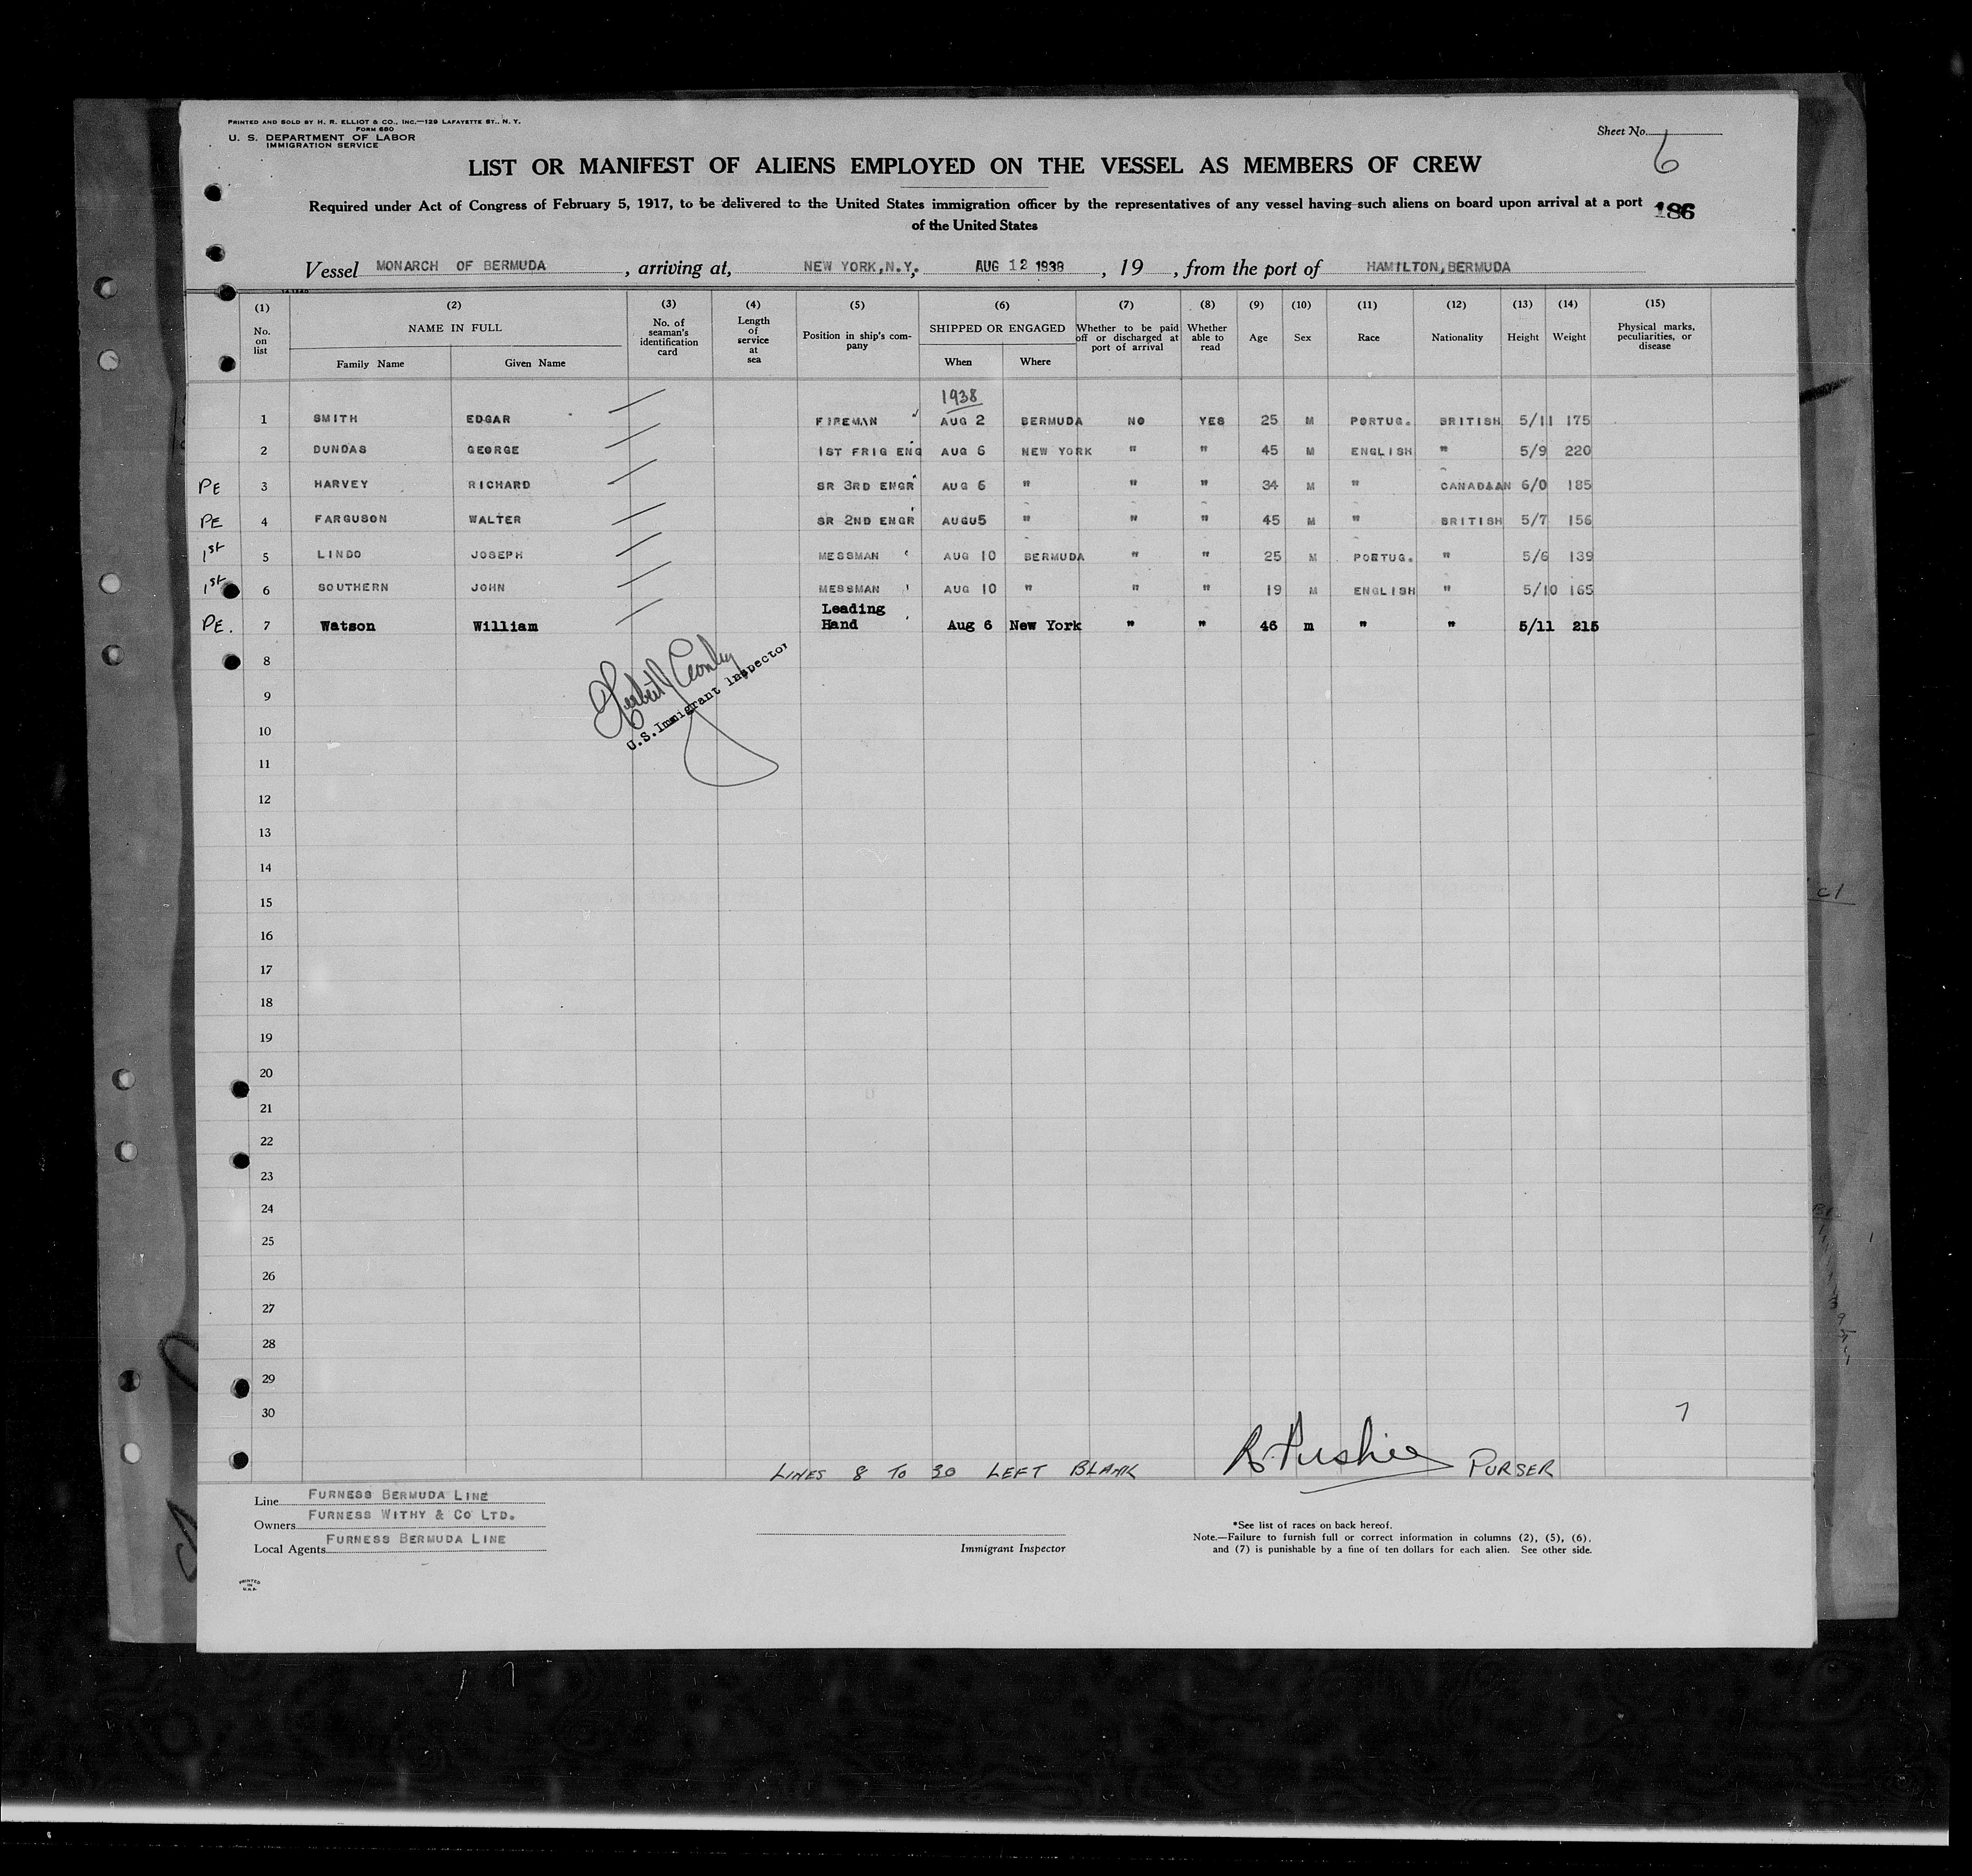 PRINTED AND SOLD BY H. R. ELLIOT & CO., INC.—129 LAFAYETTE ST., N. Y.
FORM 680
U. S. DEPARTMENT OF LABOR
IMMIGRATION SERVICE
Sheet No. 6
LIST OR MANIFEST OF ALIENS EMPLOYED ON THE VESSEL AS MEMBERS OF CREW
Required under Act of Congress of February 5, 1917, to be delivered to the United States immigration officer by the representatives of any vessel having such aliens on board upon arrival at a port
of the United States
186
Vessel MONARCH OF BERMUDA, arriving at, NEW YORK, N.Y., AUG 12 1938, 19 , from the port of HAMILTON, BERMUDA
(1) (2) (3) (4) (5) (6) (7) (8) (9) (10) (11) (12) (13) (14) (15)
No. on list NAME IN FULL Family Name Given Name No. of seaman's identification card Length of service at sea Position in ship's company SHIPPED OR ENGAGED When Where Whether to be paid off or discharged at port of arrival Whether able to read Age Sex Race Nationality Height Weight Physical marks, peculiarities, or disease
1938
1 SMITH EDGAR FIREMAN AUG 2 BERMUDA NO YES 25 M PORTUG. BRITISH 5/11 175
2 DUNDAS GEORGE 1ST FRIG ENG AUG 6 NEW YORK " " 45 M ENGLISH " 5/9 220
PE 3 HARVEY RICHARD SR 3RD ENGR AUG 6 " " " 34 M " CANADIAN 6/0 185
PE 4 FARGUSON WALTER SR 2ND ENGR AUGU5 " " " 45 M " BRITISH 5/7 156
1st 5 LINDO JOSEPH MESSMAN AUG 10 BERMUDA " " 25 M PORTUG. " 5/6 139
1st 6 SOUTHERN JOHN MESSMAN AUG 10 " " " 19 M ENGLISH " 5/10 165
PE. 7 Watson William Leading Hand Aug 6 New York " " 46 m " " 5/11 215
U.S. Immigrant Inspector
8
9
10
11
12
13
14
15
16
17
18
19
20
21
22
23
24
25
26
27
28
29
30
7
LINES 8 TO 30 LEFT BLANK
PURSER
Line FURNESS BERMUDA LINE
Owners FURNESS WITHY & CO LTD.
Local Agents FURNESS BERMUDA LINE
Immigrant Inspector
*See list of races on back hereof.
Note.—Failure to furnish full or correct information in columns (2), (5), (6),
and (7) is punishable by a fine of ten dollars for each alien. See other side.
PRINTED
IN
U.S.A.